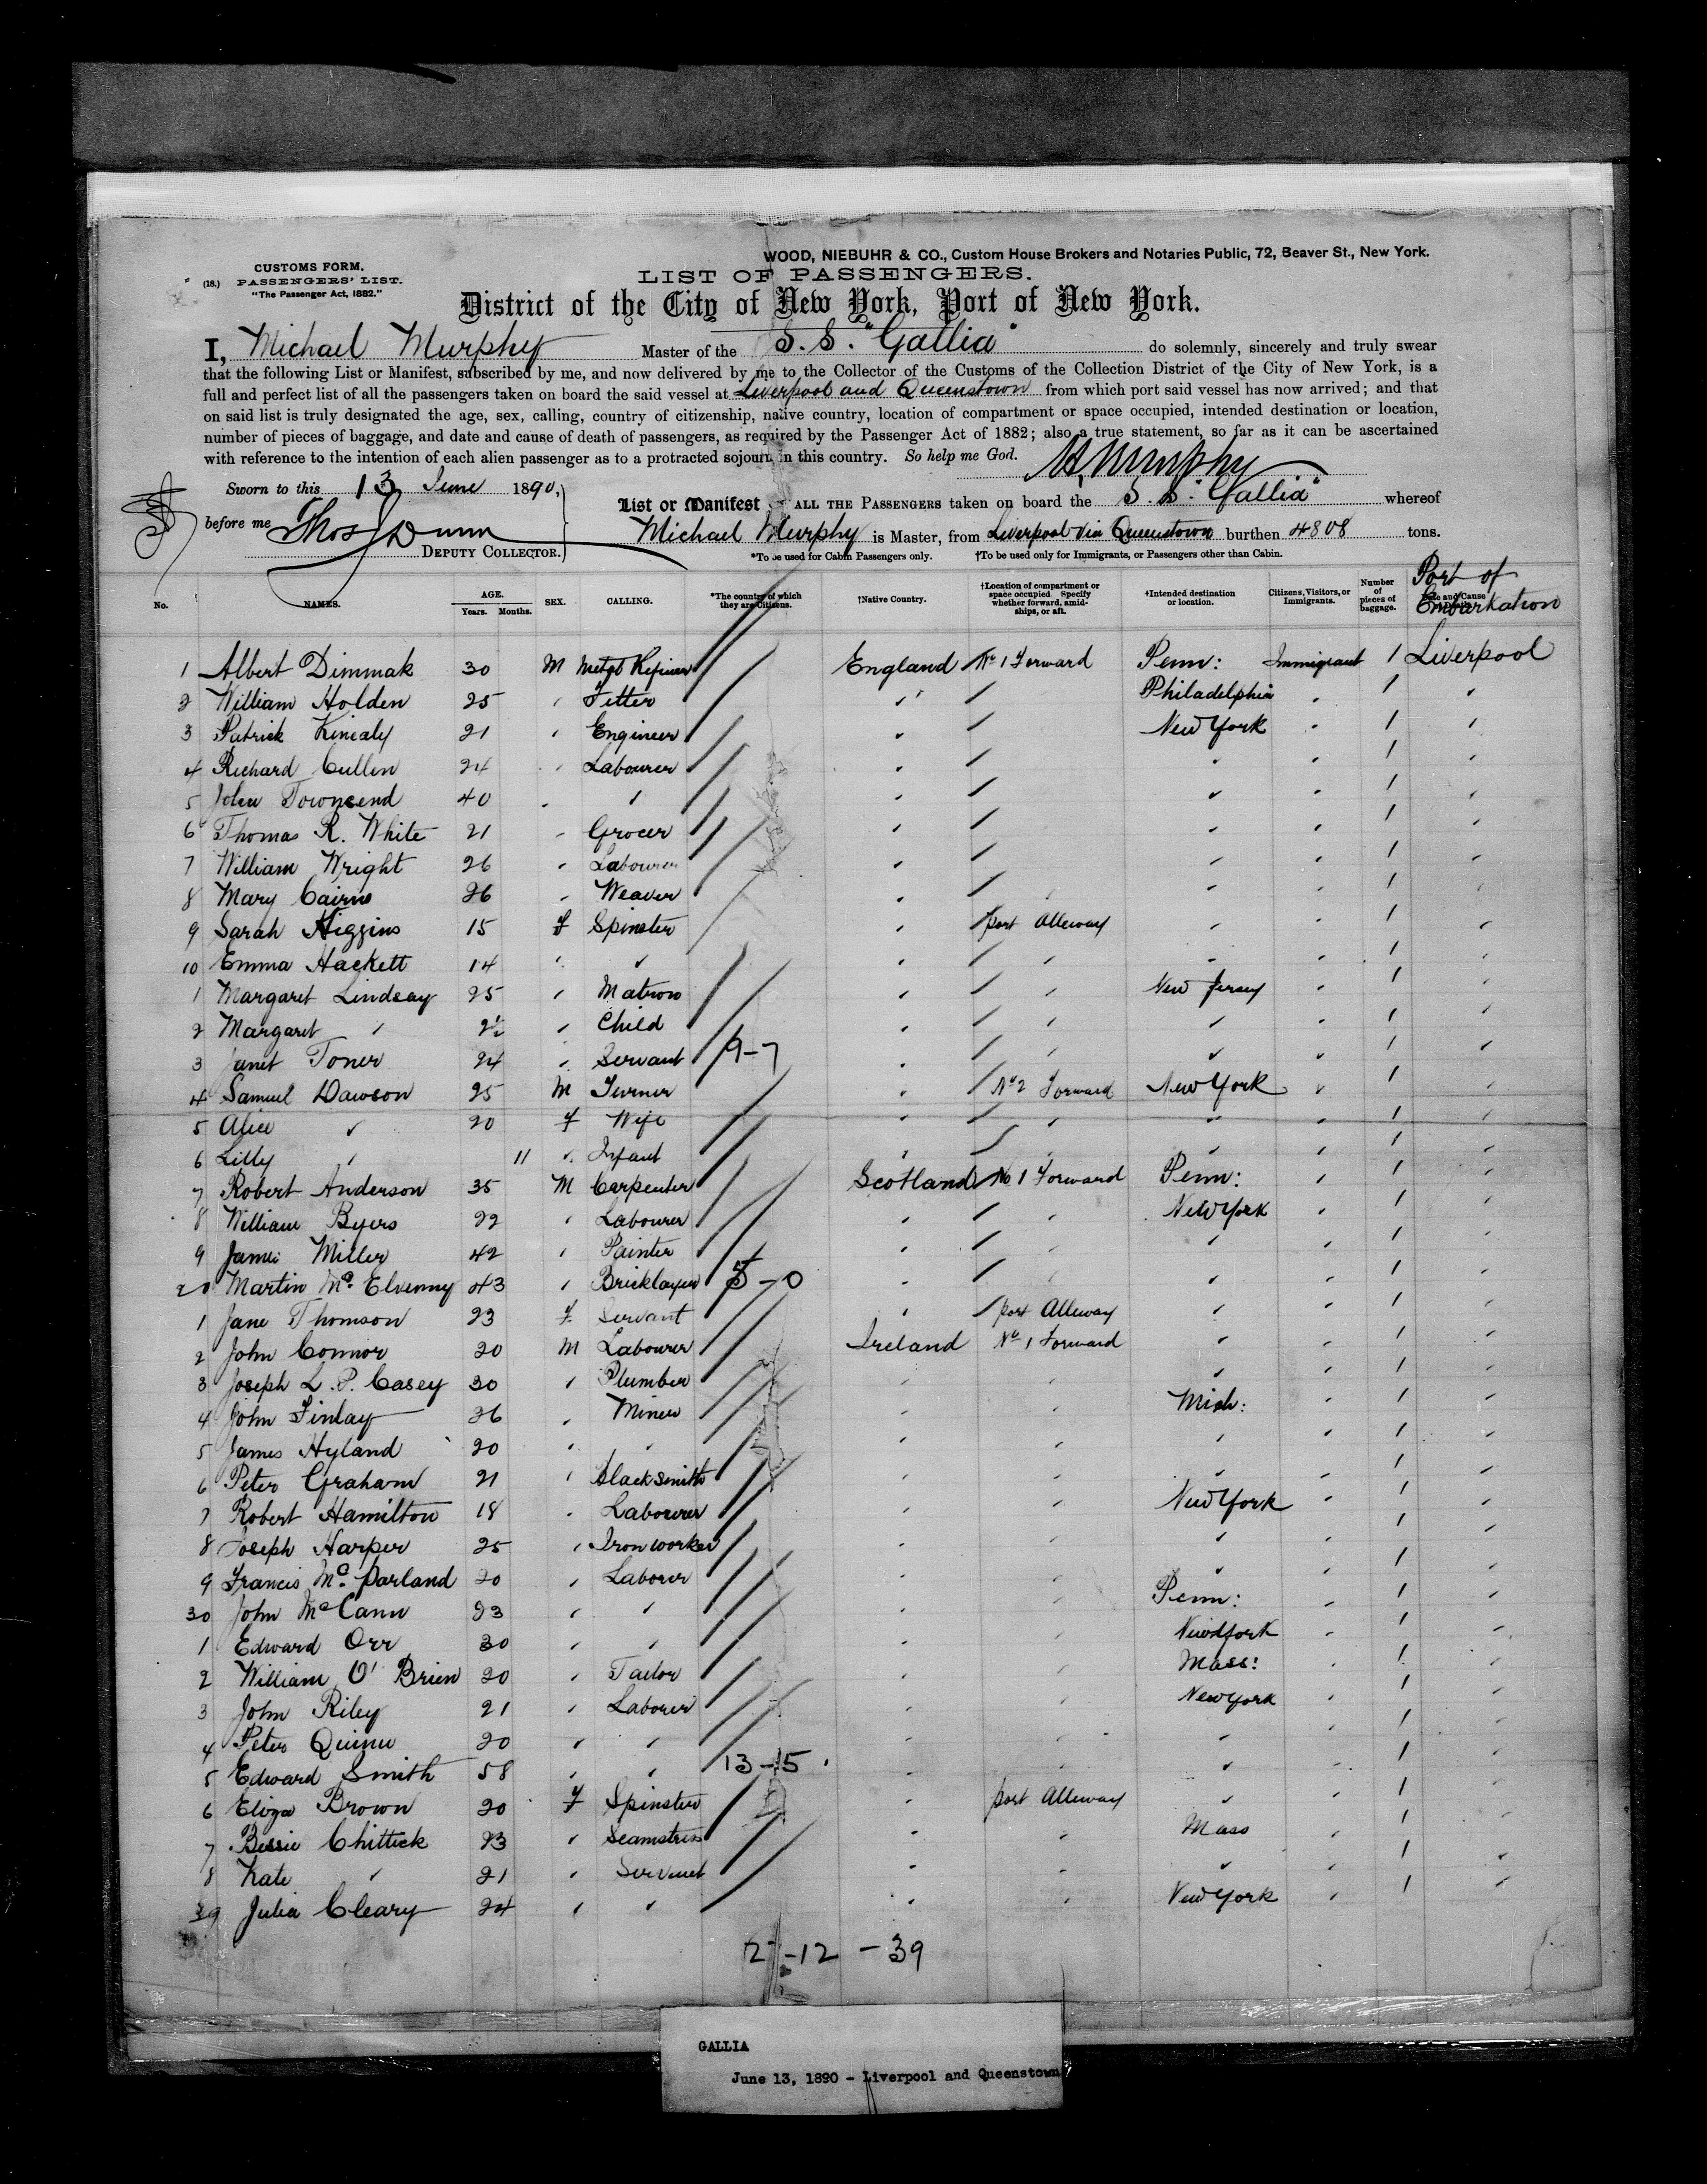 WOOD, NIEBUHR & CO., Custom House Brokers and Notaries Public, 72, Beaver St., New York.
CUSTOMS FORM.
(18.) PASSENGERS' LIST.
"The Passenger Act, 1882."
LIST OF PASSENGERS.
District of the City of New York, Port of New York.
I, Michael Murphy Master of the S.S. "Gallia" do solemnly, sincerely and truly swear
that the following List or Manifest, subscribed by me, and now delivered by me to the Collector of the Customs of the Collection District of the City of New York, is a
full and perfect list of all the passengers taken on board the said vessel at Liverpool and Queenstown from which port said vessel has now arrived; and that
on said list is truly designated the age, sex, calling, country of citizenship, native country, location of compartment or space occupied, intended destination or location,
number of pieces of baggage, and date and cause of death of passengers, as required by the Passenger Act of 1882; also a true statement, so far as it can be ascertained
with reference to the intention of each alien passenger as to a protracted sojourn in this country. So help me God. M. Murphy
Sworn to this 13 June 1890,
before me Thos Dunn
DEPUTY COLLECTOR.
List or Manifest OF ALL THE PASSENGERS taken on board the S.S. "Gallia" whereof
Michael Murphy is Master, from Liverpool via Queenstown burthen 4808 tons.
*To be used for Cabin Passengers only. †To be used only for Immigrants, or Passengers other than Cabin.
No. NAMES. AGE. Years. Months. SEX. CALLING. *The country of which they are Citizens. †Native Country. †Location of compartment or space occupied Specify whether forward, amidships, or aft. †Intended destination or location. Citizens, Visitors, or Immigrants. Number of pieces of baggage. Port of Embarkation
1 Albert Dimmak 30 M Metal Refiner England No 1 Forward Penn: Immigrant 1 Liverpool
2 William Holden 25 " Fitter " / Philadelphia " 1 "
3 Patrick Kinealy 21 " Engineer " / New York " 1 "
4 Richard Cullen 24 " Labourer " / " " 1 "
5 John Townsend 40 " " " / " " 1 "
6 Thomas R. White 21 " Grocer " / " " 1 "
7 William Wright 26 " Labourer " / " " 1 "
8 Mary Cairns 26 " Weaver " / " " " 1 "
9 Sarah Higgins 15 F Spinster " port Alleway " " 1 "
10 Emma Hackett 14 " " " / " " " 1 "
1 Margaret Lindsay 25 " Matron " / " New Jersey " 1 "
2 Margaret " 2½ " Child " / " " " 1 "
3 Janet Toner 24 " Servant 9-7 " / " " " 1 "
4 Samuel Dawson 25 M Turner " No 2 Forward New York " 1 "
5 Alice " 20 F Wife " / " " " 1 "
6 Lilly " 11 " Infant " / " " " 1 "
7 Robert Anderson 35 M Carpenter Scotland No 1 Forward Penn: " 1 "
8 William Byers 22 " Labourer " / " New York " 1 "
9 James Miller 42 " Painter " / " " " 1 "
20 Martin Mc Elvenny 43 " Bricklayer 5-0 " / " " " 1 "
1 Jane Thomson 23 F Servant " port Alleway " " 1 "
2 John Connor 20 M Labourer Ireland No 1 Forward " " 1 "
3 Joseph L. P. Casey 30 " Plumber " " " " 1 "
4 John Finlay 26 " Miner " " Mich: " 1 "
5 James Hyland 20 " " " " " " 1 "
6 Peter Graham 21 " Blacksmith " " " " 1 "
7 Robert Hamilton 18 " Labourer " " New York " 1 "
8 Joseph Harper 25 " Iron worker " " " " 1 "
9 Francis Mc Parland 20 " Laborer " " " " 1 "
30 John McCann 23 " " " " Penn: " 1 "
1 Edward Orr 30 " " " " New York " 1 "
2 William O'Brien 20 " Tailor " " Mass: " 1 "
3 John Riley 21 " Laborer " " New York " 1 "
4 Peter Quinn 20 " " " " " " 1 "
5 Edward Smith 58 " " 13-15 " " " " 1 "
6 Eliza Brown 20 F Spinster " port Alleway " " 1 "
7 Bessie Chittick 23 " Seamstress " " Mass " 1 "
8 Kate " 21 " Servant " " " " 1 "
39 Julia Cleary 24 " " " " New York " 1 "
27-12-39
GALLIA
June 13, 1890 - Liverpool and Queenstown